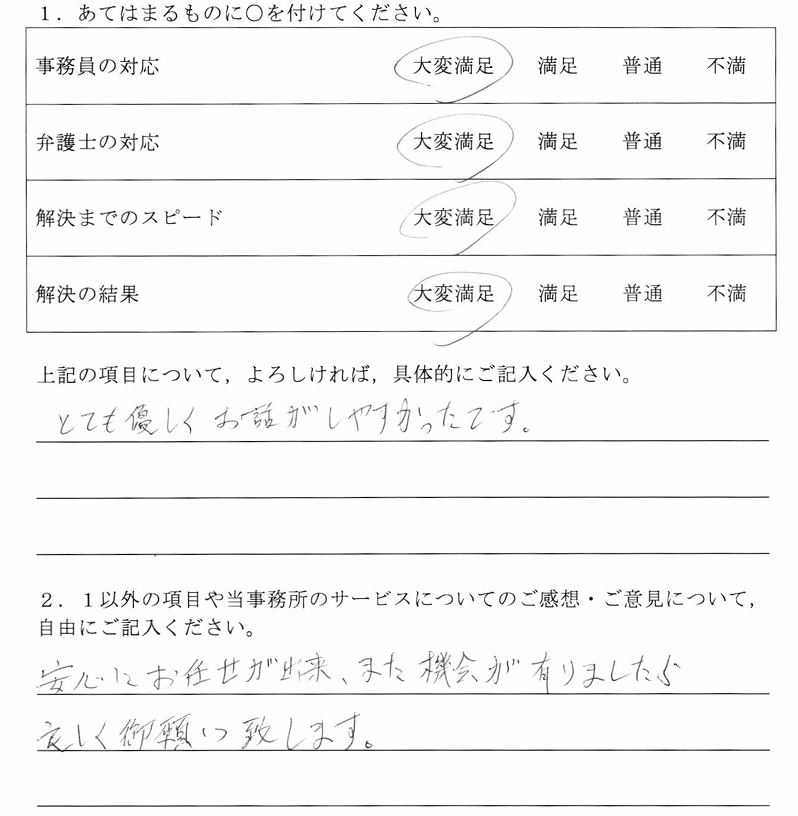 １．あてはまるものに○を付けてください。
事務員の対応　大変満足　満足　普通　不満
弁護士の対応　大変満足　満足　普通　不満
解決までのスピード　大変満足　満足　普通　不満
解決の結果　大変満足　満足　普通　不満
上記の項目について，よろしければ，具体的にご記入ください。
とても優しくお話がしやすかったです。
２．１以外の項目や当事務所のサービスについてのご感想・ご意見について，
自由にご記入ください。
安心にお任せが出来、また機会が有りましたら
宜しく御願い致します。